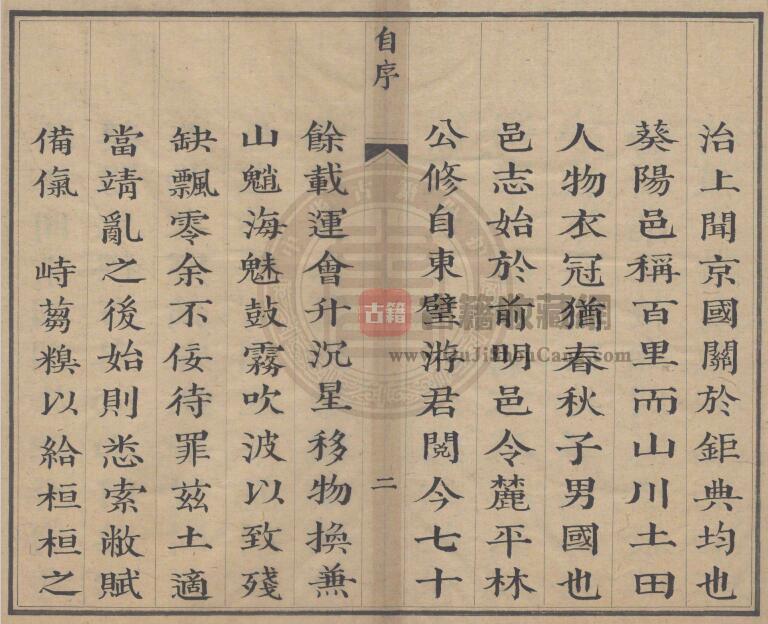 治上聞京國關於鉅典均也
葵陽邑稱百里而山川土田
人物衣冠猶春秋子男國也
邑志始於前明邑令麓平林
公修自東壁游君閱今七十
自序
二
餘載運會升沉星移物換兼
山魈海魅鼓霧吹波以致殘
缺飄零余不佞待罪茲土適
當靖亂之後始則悉索敝賦
備偫峙芻糗以給桓桓之
古籍
古籍收藏網
www.GuJiShouCang.com